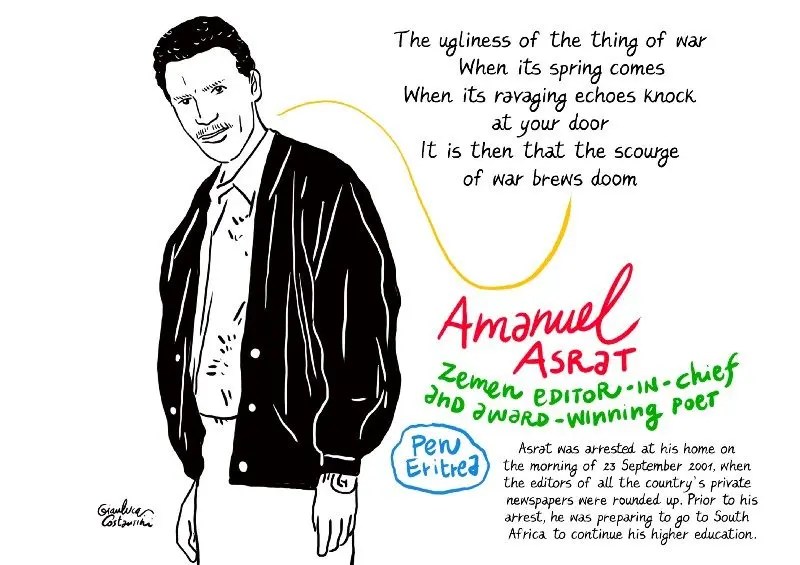 The ugliness of the thing of war
When its spring comes
When its ravaging echoes knock
at your door
It is then that the scourge
of war brews doom
Amanuel
ASRAT
Zemen EDITOR-IN-chief
and award-winning poet
Pen
Eritrea
Asrat was arrested at his home on
the morning of 23 September 2001, when
the editors of all the country's private
newspapers were rounded up. Prior to his
arrest, he was preparing to go to South
Africa to continue his higher education.
Gianluca
Costantini